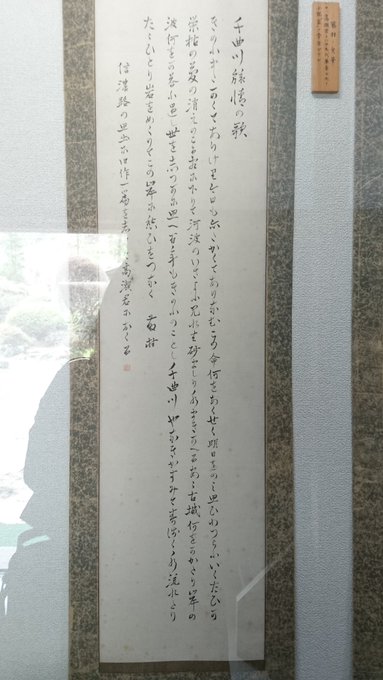 千曲川旅情の歌
きのふまたかくてありけり今日もまたかくてありなむこの命何をあくせく明日をのミ思ひわつらふいくたひか
栄枯の夢の消えのこる谷に下りて河波のいさよふ見れは砂ましり水まきかへるあゝ古城何をかかたり岸の
波何をか答ふ過し世を志つかに思へ百年もきのふのことし千曲川やなきかすみて春浅く水流れたり
たゝひとり岩をめくりてこの岸に愁ひをつなく 藤村
信濃路の思出に旧作一篇を 高濱君におくる